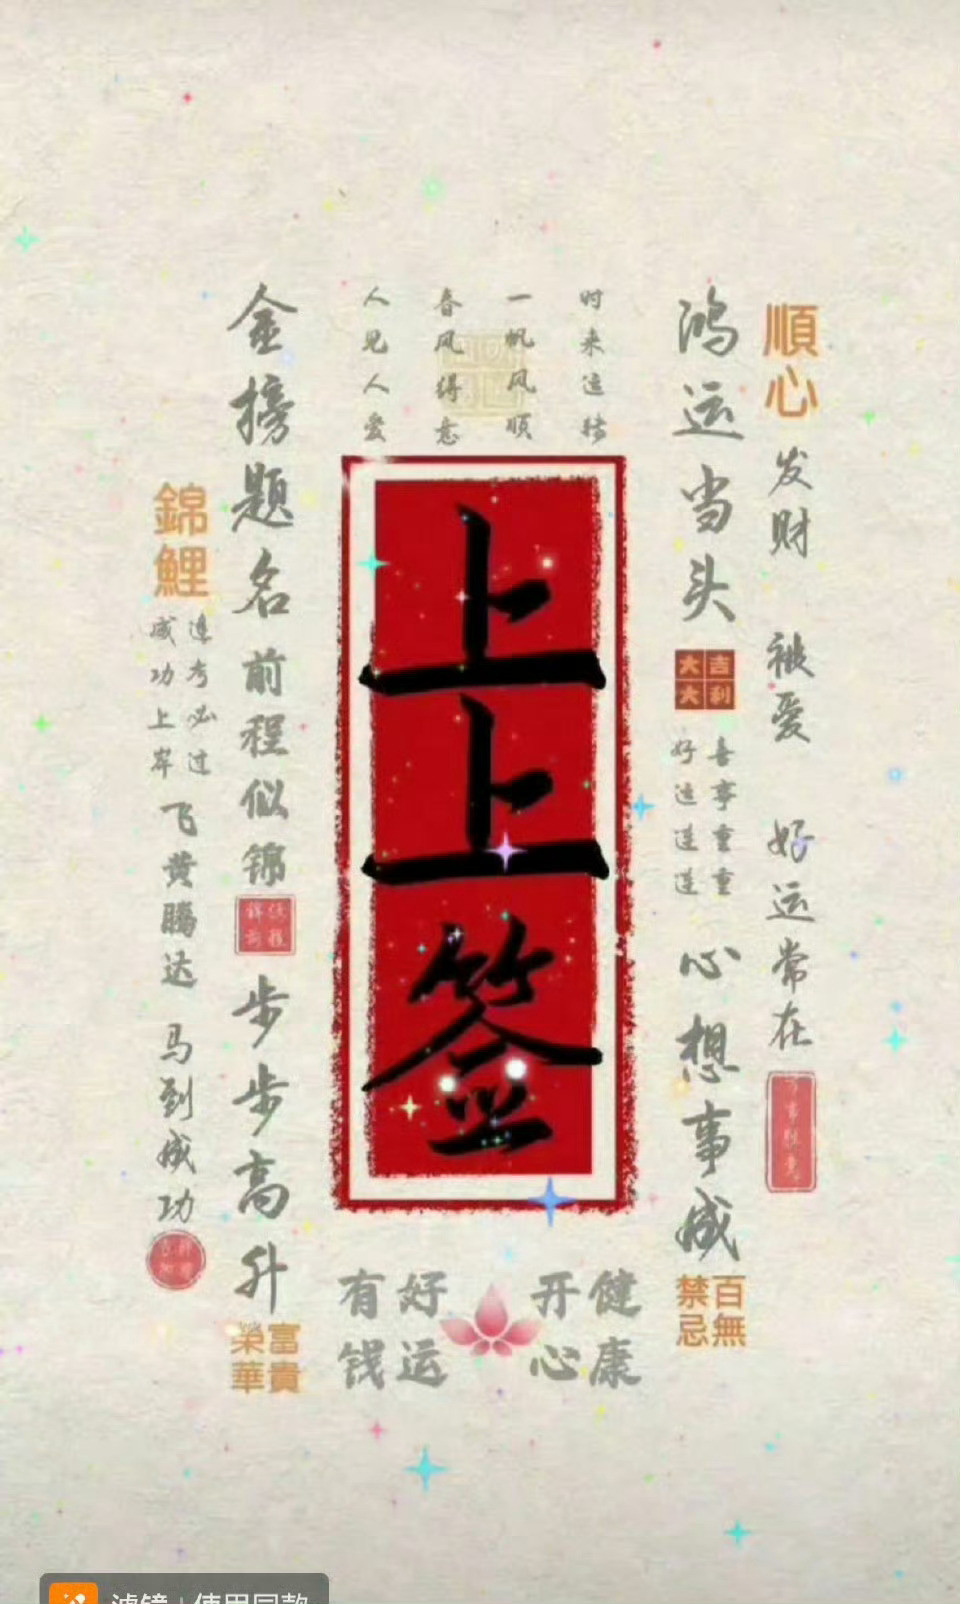 順心
发财 被爱 好运常在
鸿运当头
大吉
大利
喜事重重
好运连连
心想事成
百無
禁忌
时来运转
一帆风顺
春风得意
人见人爱
上上签
健康
开心
好运
有钱
金榜题名
前程似锦
步步高升
富貴
榮華
錦鯉
逢考必过
成功上岸
飞黄腾达
马到成功
滤镜 | 使用同款